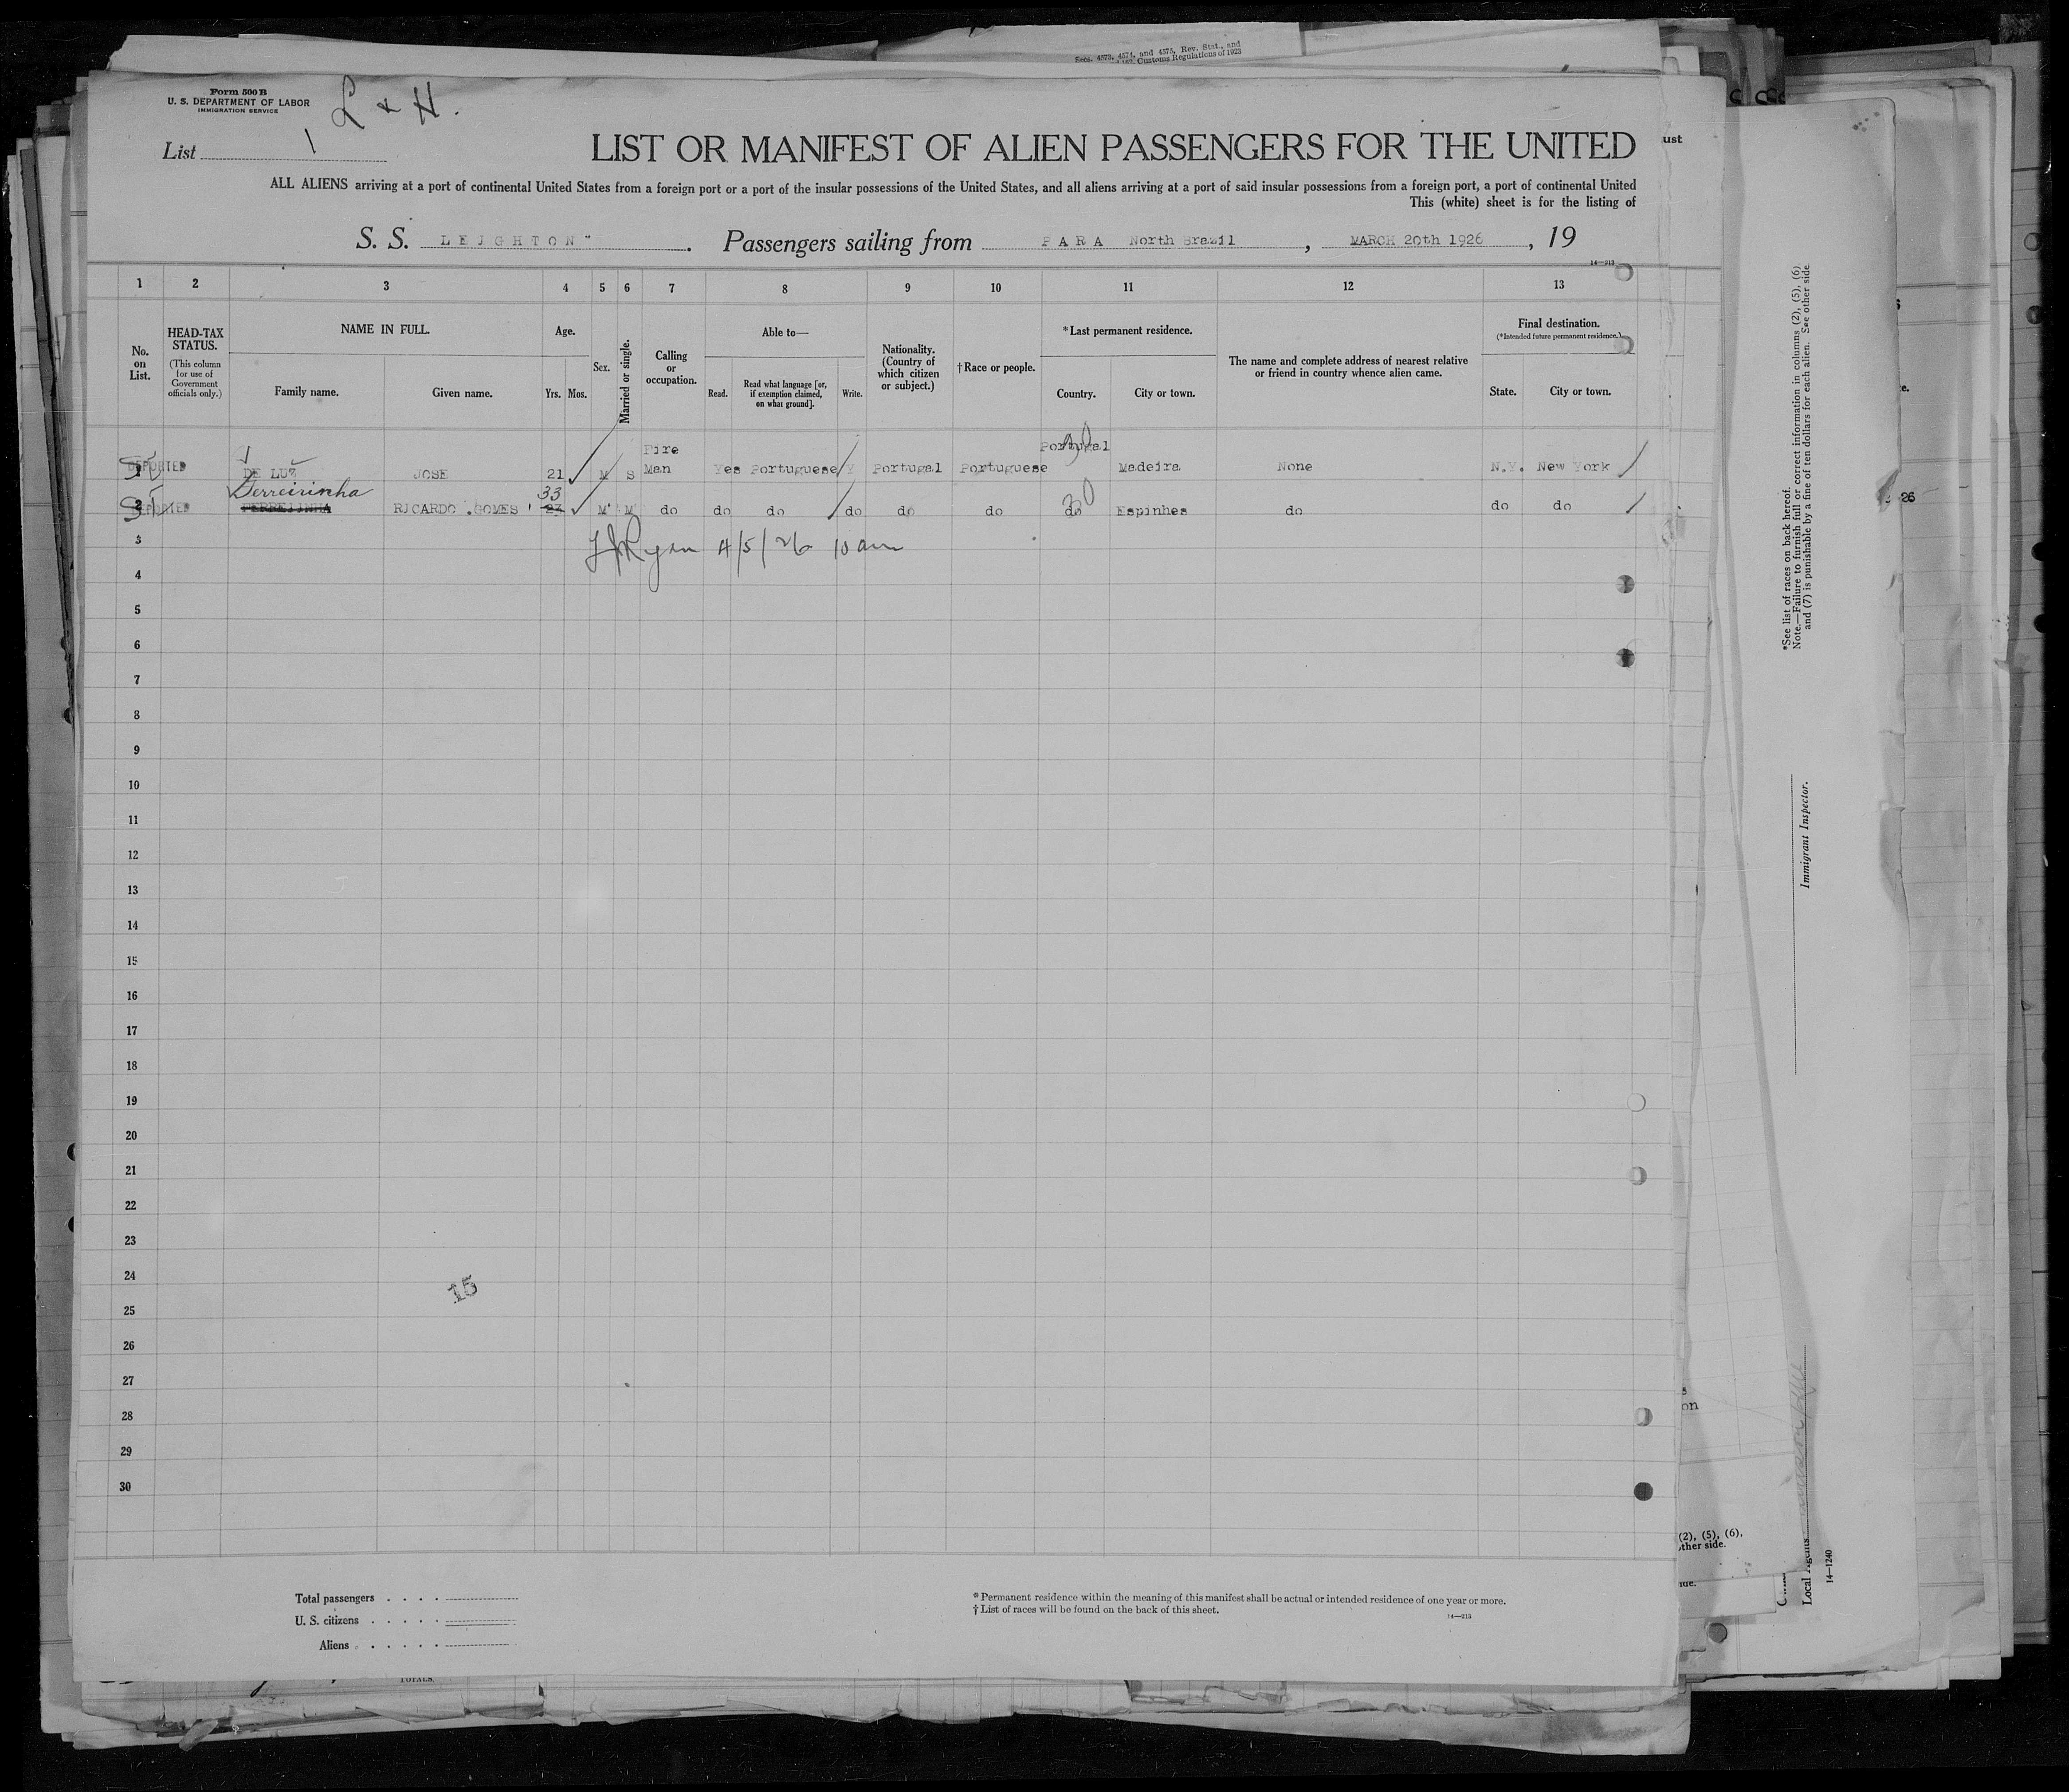 Secs. 4573, 4574, and 4575, Rev. Stat., and
Customs Regulations of 1923
Form 500 B
U. S. DEPARTMENT OF LABOR
IMMIGRATION SERVICE
L & H.
List 1
LIST OR MANIFEST OF ALIEN PASSENGERS FOR THE UNITED
ALL ALIENS arriving at a port of continental United States from a foreign port or a port of the insular possessions of the United States, and all aliens arriving at a port of said insular possessions from a foreign port, a port of continental United
This (white) sheet is for the listing of
S. S. LEIGHTON" . Passengers sailing from PARA North Brazil , MARCH 20th 1926 , 19
14—213
1 2 3 4 5 6 7 8 9 10 11 12 13
No. on List.
HEAD-TAX STATUS.
(This column for use of Government officials only.)
NAME IN FULL.
Family name. Given name.
Age.
Yrs. Mos.
Sex.
Married or single.
Calling or occupation.
Able to—
Read. Read what language [or, if exemption claimed, on what ground]. Write.
Nationality. (Country of which citizen or subject.)
†Race or people.
*Last permanent residence.
Country. City or town.
The name and complete address of nearest relative or friend in country whence alien came.
Final destination.
(*Intended future permanent residence.)
State. City or town.
1 DEPORTED DE LUZ JOSE 21 M S Fire Man Yes Portuguese Y Portugal Portuguese Portugal Madeira None N.Y. New York
Ferreirinha 33
2 DEPORTED FERREIINHA RICARDO GOMES 23 M M do do do do do do do Espinhes do do do
3
Ryan 4/5/26 10 am
4
5
6
7
8
9
10
11
12
13
14
15
16
17
18
19
20
21
22
23
24
15
25
26
27
28
29
30
Total passengers
U. S. citizens
Aliens
* Permanent residence within the meaning of this manifest shall be actual or intended residence of one year or more.
† List of races will be found on the back of this sheet.
14—213
TOTALS.
ust
26
*See list of races on back hereof.
Note.—Failure to furnish full or correct information in columns (2), (5), (6)
and (7) is punishable by a fine of ten dollars for each alien. See other side
Immigrant Inspector.
on
(2), (5), (6),
other side.
Local Agents
14—1240